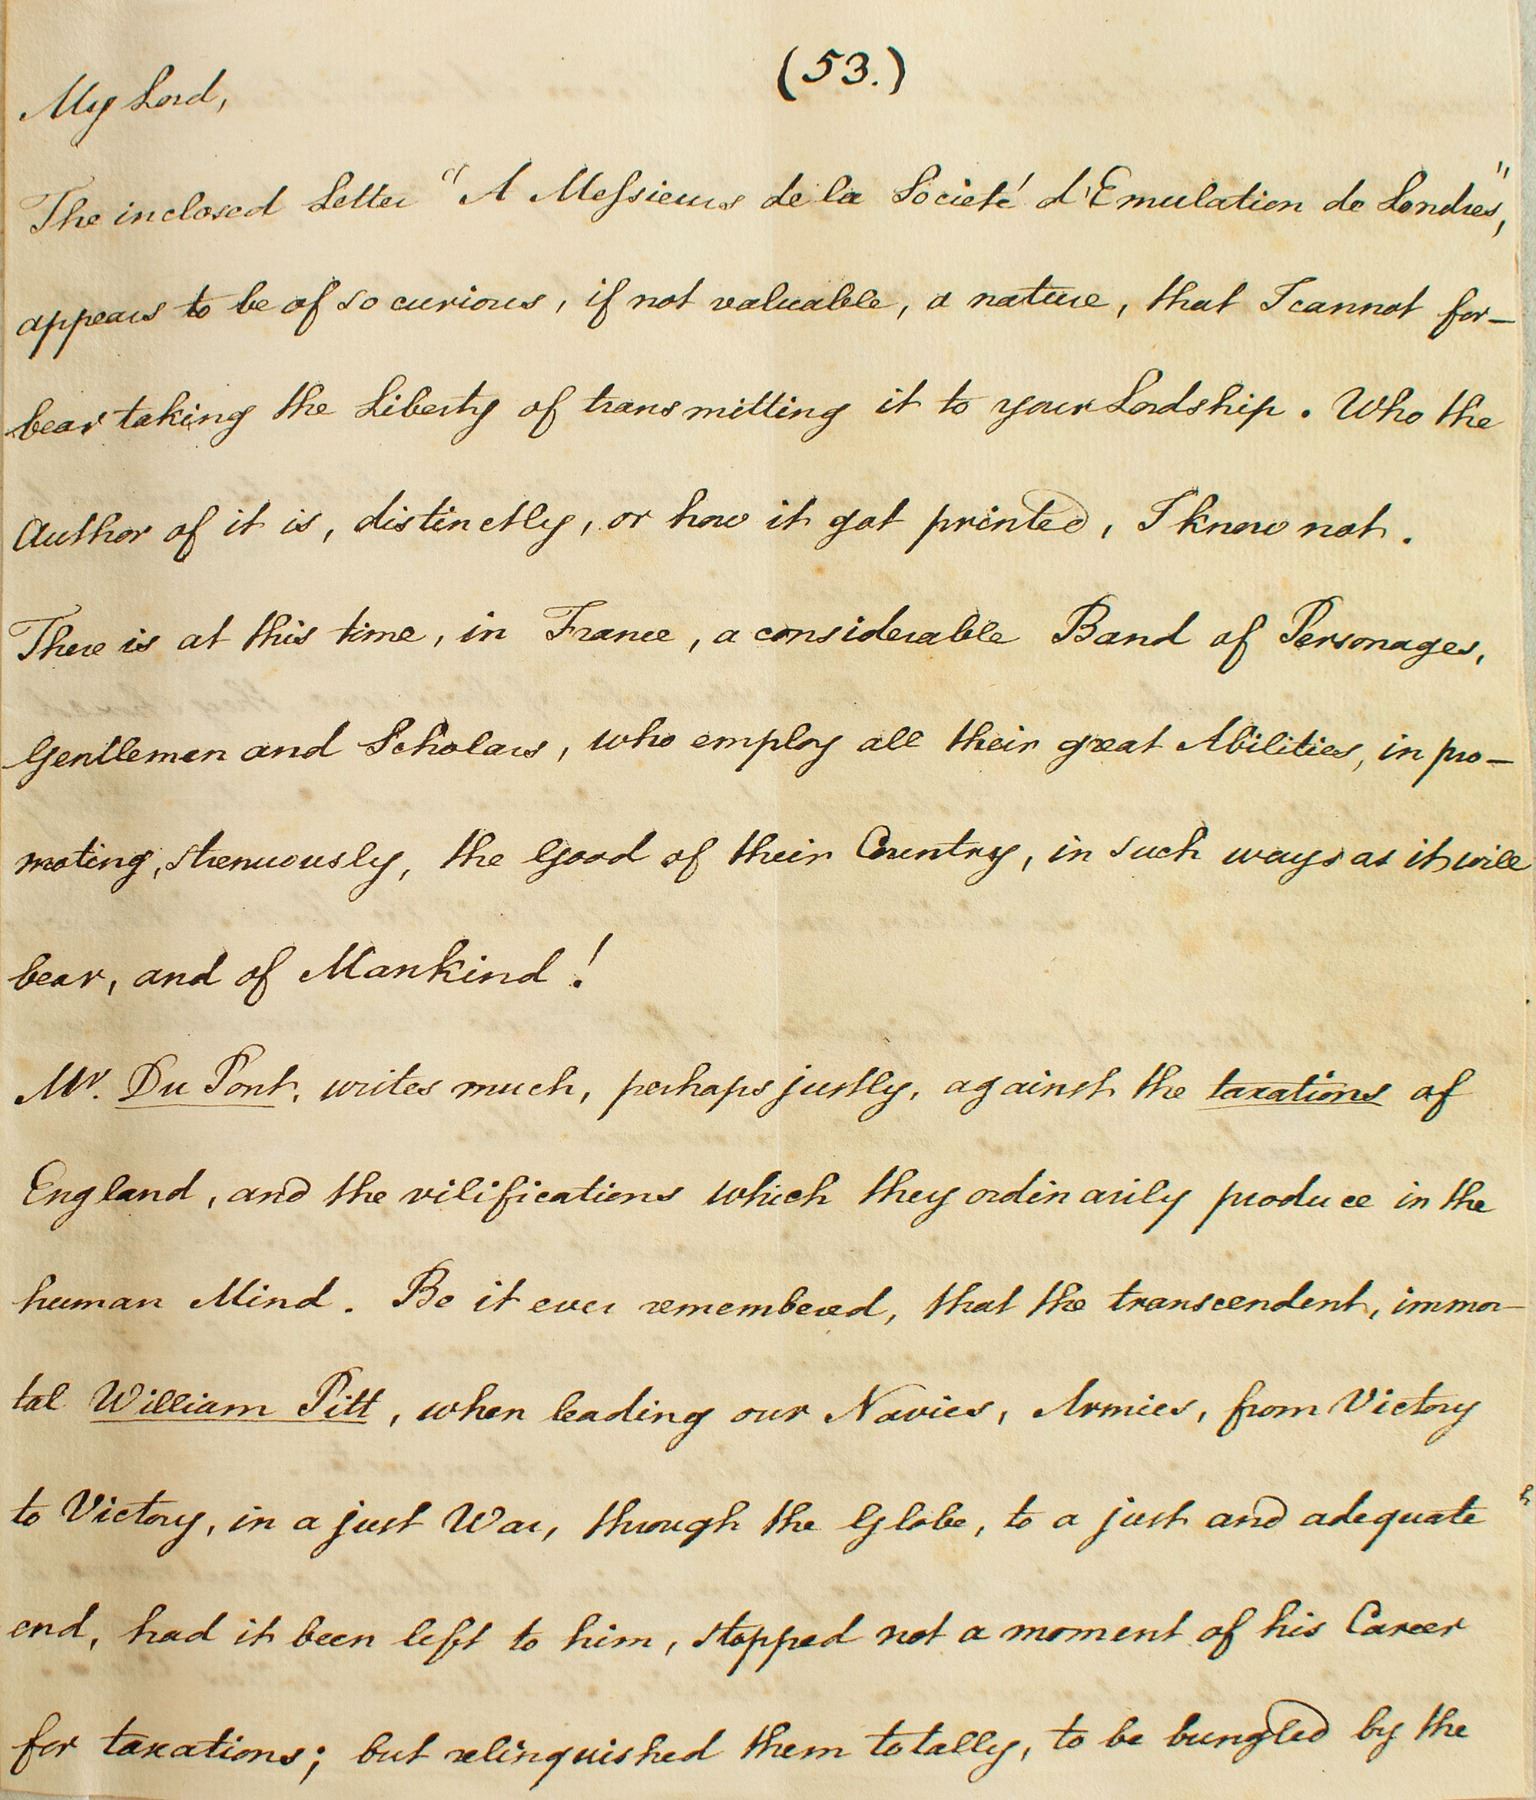 (53.)
My Lord,
The inclosed Letter "A Messieurs de la Societé d'Emulation de Londres",
appears to be of so curious, if not valuable, a nature, that I cannot for-
bear taking the Liberty of transmitting it to your Lordship. Who the
Author of it is, distinctly, or how it got printed, I know not.
There is at this time, in France, a considerable Band of Personages,
Gentlemen and Scholars, who employ all their great Abilities, in pro-
moting, strenuously, the Good of their Country, in such ways as it will
bear, and of Mankind!
Mr. Du Pont, writes much, perhaps justly, against the taxations of
England, and the vilifications which they ordinarily produce in the
human Mind. Be it ever remembered, that the transcendent, immor-
tal William Pitt, when leading our Navies, Armies, from Victory
to Victory, in a just War, through the Globe, to a just and adequate
end, had it been left to him, stopped not a moment of his Career
for taxations; but relinquished them totally, to be bungled by the